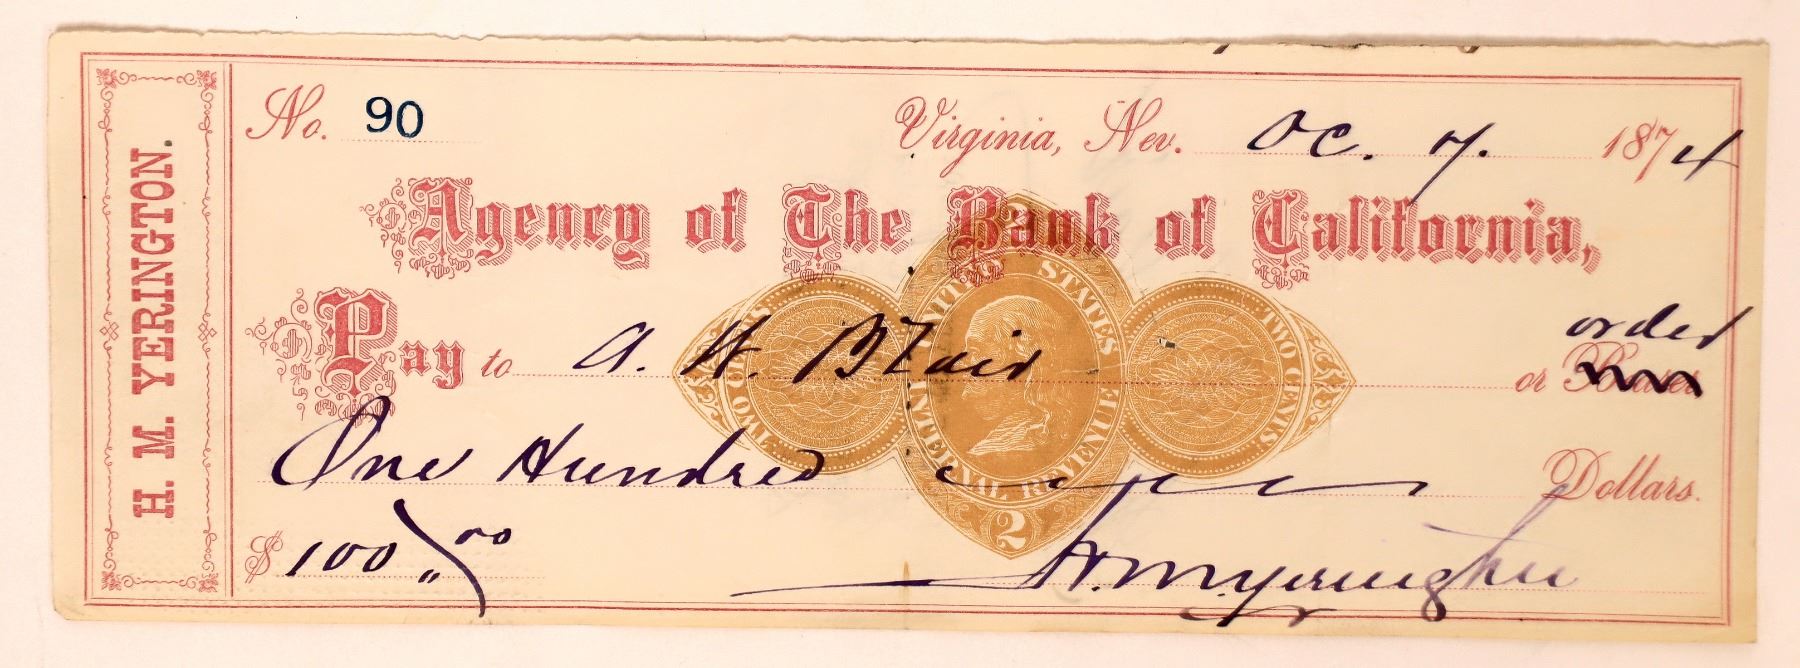 H. M. YERINGTON.
No. 90
Virginia, Nev. Oc. 7. 1874
Agency of The Bank of California,
Pay to A. W. Blair or Bearer order
One Hundred Dollars.
$ 100 00
H. M. Yerington
2
UNITED STATES INTERNAL REVENUE
TWO CENTS
TWO CENTS
2